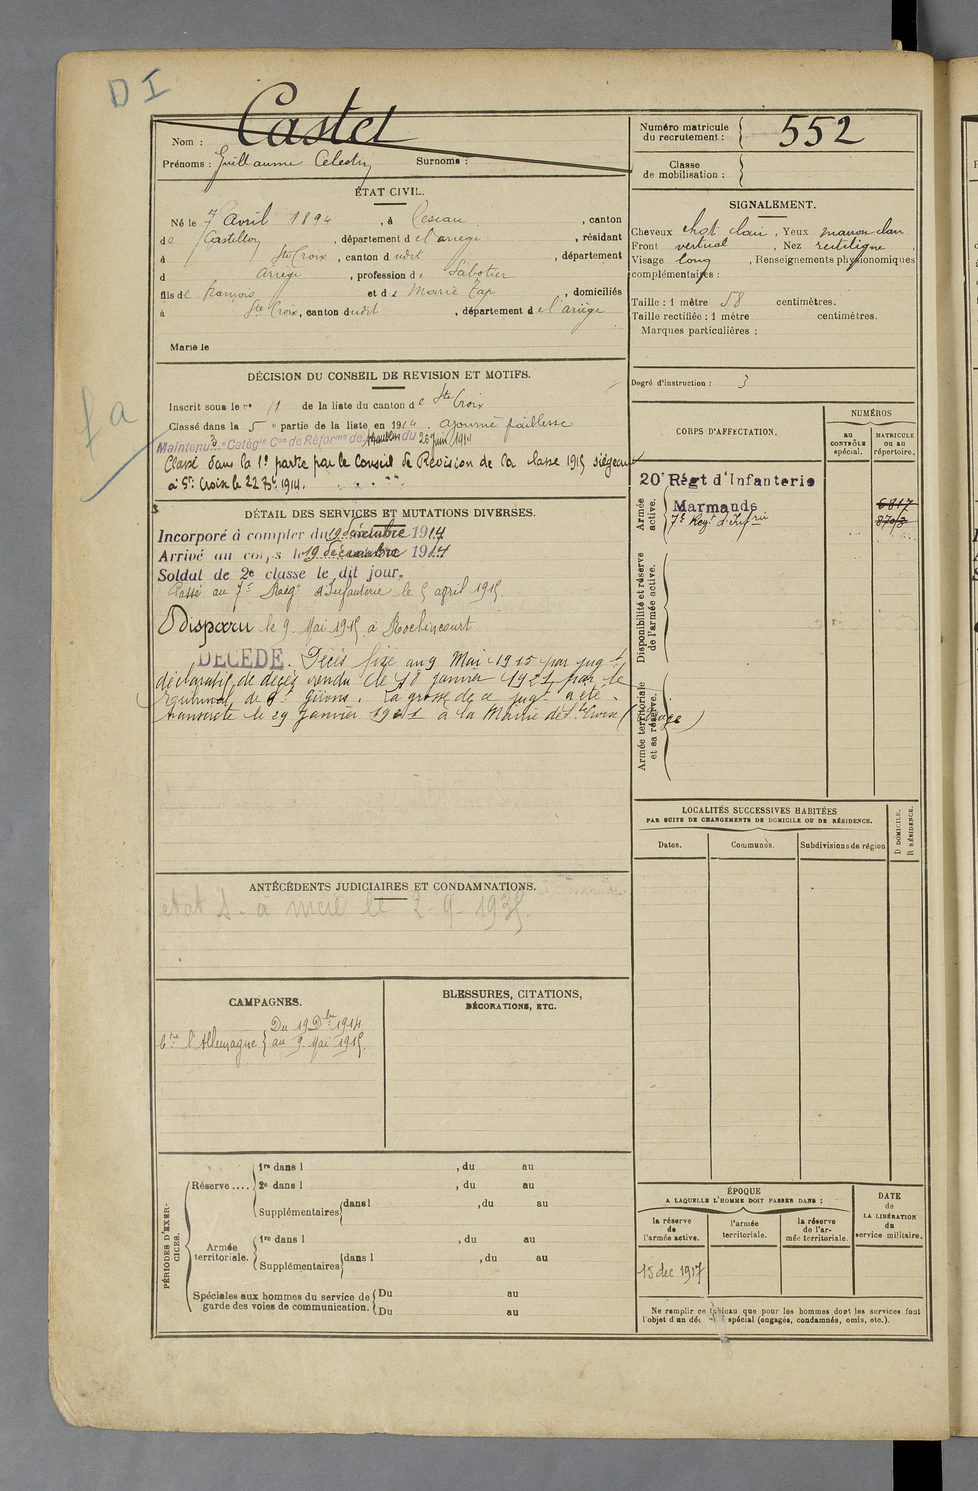 D I
Nom : Castet
Prénoms : Guillaume Célestin Surnoms :
Numéro matricule du recrutement : 552
Classe de mobilisation :
ÉTAT CIVIL.
Né le 7 Avril 1894, à Cescau, canton
de Castillon, département de l'ariege, résidant
à Ste Croix, canton dudit, département
d Ariège, profession de Sabotier
fils de françois et de Marie Tap, domiciliés
à Ste Croix, canton dudit, département de l'ariège
Marié le
SIGNALEMENT.
Cheveux chat clair, Yeux marron clair
Front vertical, Nez rectiligne,
Visage long, Renseignements physionomiques
complémentaires :
Taille : 1 mètre 58 centimètres.
Taille rectifiée : 1 mètre centimètres.
Marques particulières :
Degré d'instruction : 3
DÉCISION DU CONSEIL DE REVISION ET MOTIFS.
Inscrit sous le no 11 de la liste du canton de Ste Croix
Classé dans la 5e partie de la liste en 1914 ajourné faiblesse
Maintenu 3e Catégie Con de Réforme de du 26 Juin 1914
Classé dans la 1e partie par le Conseil de Révision de la classe 1915 siégeant
à Ste Croix le 22 1914.
DÉTAIL DES SERVICES ET MUTATIONS DIVERSES.
Incorporé à compter du 19 décembre 1914
Arrivé au corps le 19 décembre 1914
Soldat de 2e classe le dit jour.
Passé au 7e Regt d'Infanterie le 5 avril 1915.
Disparu le 9 Mai 1915 à Roclincourt
DÉCÉDÉ. Décès fixé au 9 Mai 1915 par jugt
déclaratif de decès rendu le 18 janvier 1921 par le
Tribunal de St Girons. La grosse de ce jugt a été
transcrite le 29 Janvier 1921 à la Mairie de Ste Croix (Ariège)
fa
CORPS D'AFFECTATION.
NUMÉROS
au CONTRÔLE spécial.
MATRICULE OU AU RÉPERTOIRE.
Armée active.
20e Régt d'Infanterie
Marmande 6817
7e Regt d'Infrie
Disponibilité et réserve de l'armée active.
Armée territoriale et sa réserve.
LOCALITÉS SUCCESSIVES HABITÉES
PAR SUITE DE CHANGEMENTS DE DOMICILE OU DE RÉSIDENCE.
Dates.
Communes.
Subdivisions de région
D DOMICILE.
R RÉSIDENCE.
ANTÉCÉDENTS JUDICIAIRES ET CONDAMNATIONS.
etat S. à le 2-9-1935.
CAMPAGNES.
Ctre l'Allemagne { Du 19 Dbre 1914.
au 9 Mai 1915.
BLESSURES, CITATIONS,
DÉCORATIONS, ETC.
PÉRIODES D'EXERCICES.
Réserve....
1re dans l , du au
2e dans l , du au
Supplémentaires { dans l , du au
Armée territoriale.
1re dans l , du au
Supplémentaires { dans l , du au
Spéciales aux hommes du service de garde des voies de communication.
Du au
Du au
ÉPOQUE
A LAQUELLE L'HOMME DOIT PASSER DANS :
la réserve de l'armée active.
l'armée territoriale.
la réserve de l'armée territoriale.
DATE de LA LIBÉRATION du service militaire.
15 dec 1917
Ne remplir ce tableau que pour les hommes dont les services font
l'objet d'un spécial (engagés, condamnés, omis, etc.).